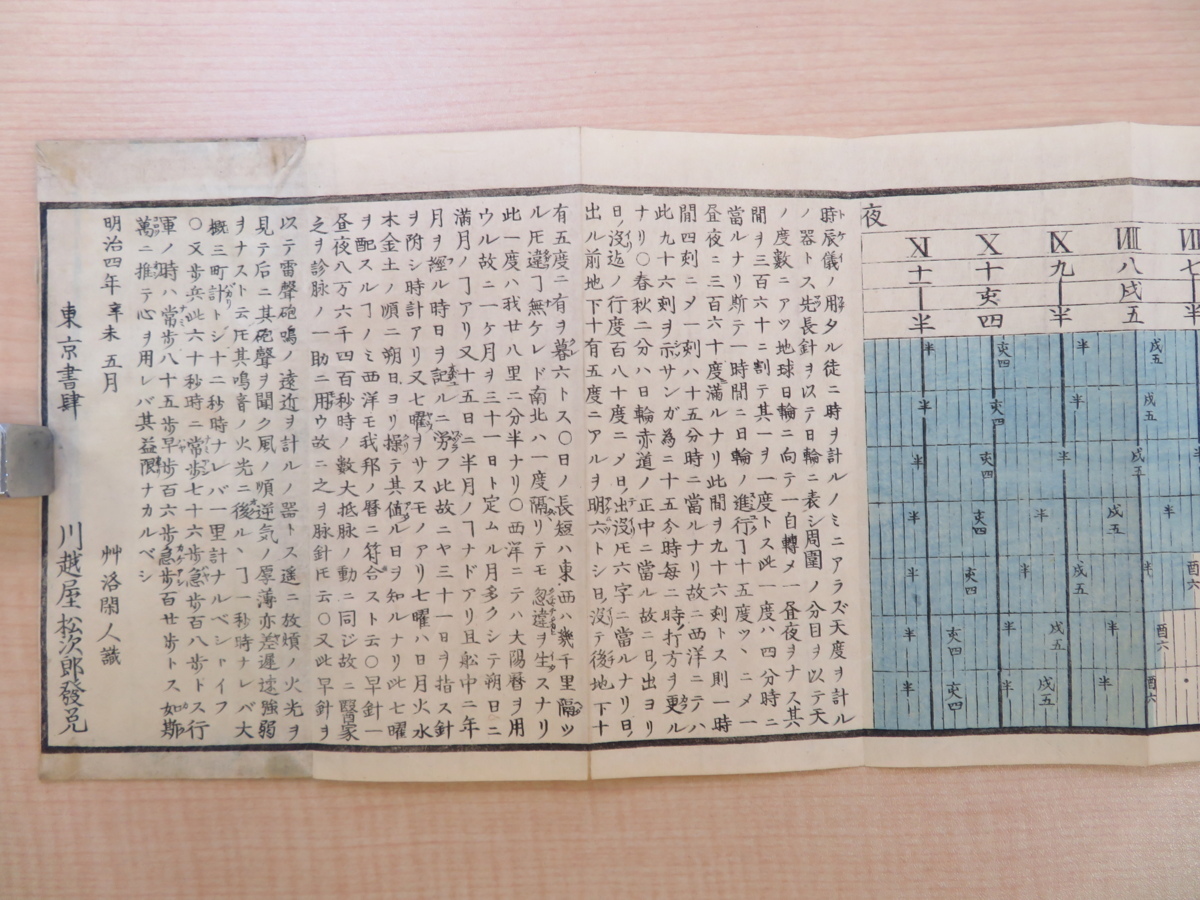 夜
Ⅺ Ⅹ Ⅸ Ⅷ Ⅶ
十一 十 九 八 七
亥 戌
半 四 半 五 半
半 亥四 半 戌五
半 亥四 半 戌五
半 亥四 半 戌五
半 亥四 半 戌五 半
半 亥四 半 戌五 半 酉六
半 亥四 半 戌五 半 酉六
半 亥四 半 戌五 半 酉六
時辰儀ノ用タル徒ニ時ヲ計ルノミニアラズ天度ヲ計ル
ノ器トス先長針ヲ以テ日輪ニ表シ周圍ノ分目ヲ以テ天
ノ度數ニアツ地球日輪ニ向テ一自轉〆一昼夜ヲナス其
間ヲ三百六十ニ割テ其一ヲ一度トス此一度ハ四分時ニ
當ルナリ斯テ一時間ニ日輪ノ進行ヿ十五度ツヽニ〆一
昼夜ニ三百六十度滿ルナリ此間ヲ九十六刻トス則一時
間四刻ニ〆一刻ハ十五分時ニ當ルナリ故ニ西洋ニテハ
此九十六刻ヲ示サンガ為ニ十五分時毎ニ時打方ヲ更ル
ナリ〇春秋二分ハ日輪赤道ノ正中ニ當ル故ニ日ノ出ヨリ
日ノ沒迠ノ行度百八十度ニ〆日ノ出沒𪜈六字ニ當ルナリ日ノ
出ル前地下十有五度ニアルヲ明六トシ日沒テ後地下十
有五度ニ有ヲ暮六トス〇日ノ長短ハ東西ハ幾千里隔ツ
ル𪜈違ヿ無ケレド南北ハ一度隔リテモ忽違ヲ生スナリ
此一度ハ我廿八里二分半ナリ〇西洋ニテハ大陽曆ヲ用
ウル故ニ一ケ月ヲ三十一日ト定ムル月多クシテ朔日ニ
満月ノヿアリ又十五日ニ半月ノヿナドアリ且舩中ニ年
月ヲ經ル時日ヲ記ルニ労フ此故ニヤ三十一日ヲ指ス針
ヲ附シ時計アリ又七曜ヲサスモノアリ七曜ハ日月火水
木金土ノ順ニ朔日ヨリ操テ其値ル日ヲ知ルナリ此七曜
ヲ配スルヿノミ西洋モ我邦ノ暦ニ符合スト云〇早針一
昼夜八万六千四百秒時ノ数大抵脉ノ動ニ同ジ故ニ醫家
之ヲ診脉ノ一助ニ用ウ故ニ之ヲ脉針𪜈云〇又此早針ヲ
以テ雷聲砲鳴ノ遠近ヲ計ルノ器トス遥ニ故熕ノ火光ヲ
見テ后ニ其砲聲ヲ聞ク風ノ順逆気ノ厚薄亦差遲速強弱
ヲナスト云𪜈其鳴音ノ火光ニ後ルヽヿ一秒時ナレバ大
概三町計トシ十二秒時ナレバ一里計ナルベシトイフ
〇又歩兵此六十秒時ニ常歩七十六歩急歩百八歩トス行
軍ノ時ハ常歩八十五歩早歩百六歩急歩百廿歩トス如斯
萬ニ推テ心ヲ用レバ其益限ナカルベシ
明治四年辛未五月 艸洛閑人識
東京書肆 川越屋松次郎發兌